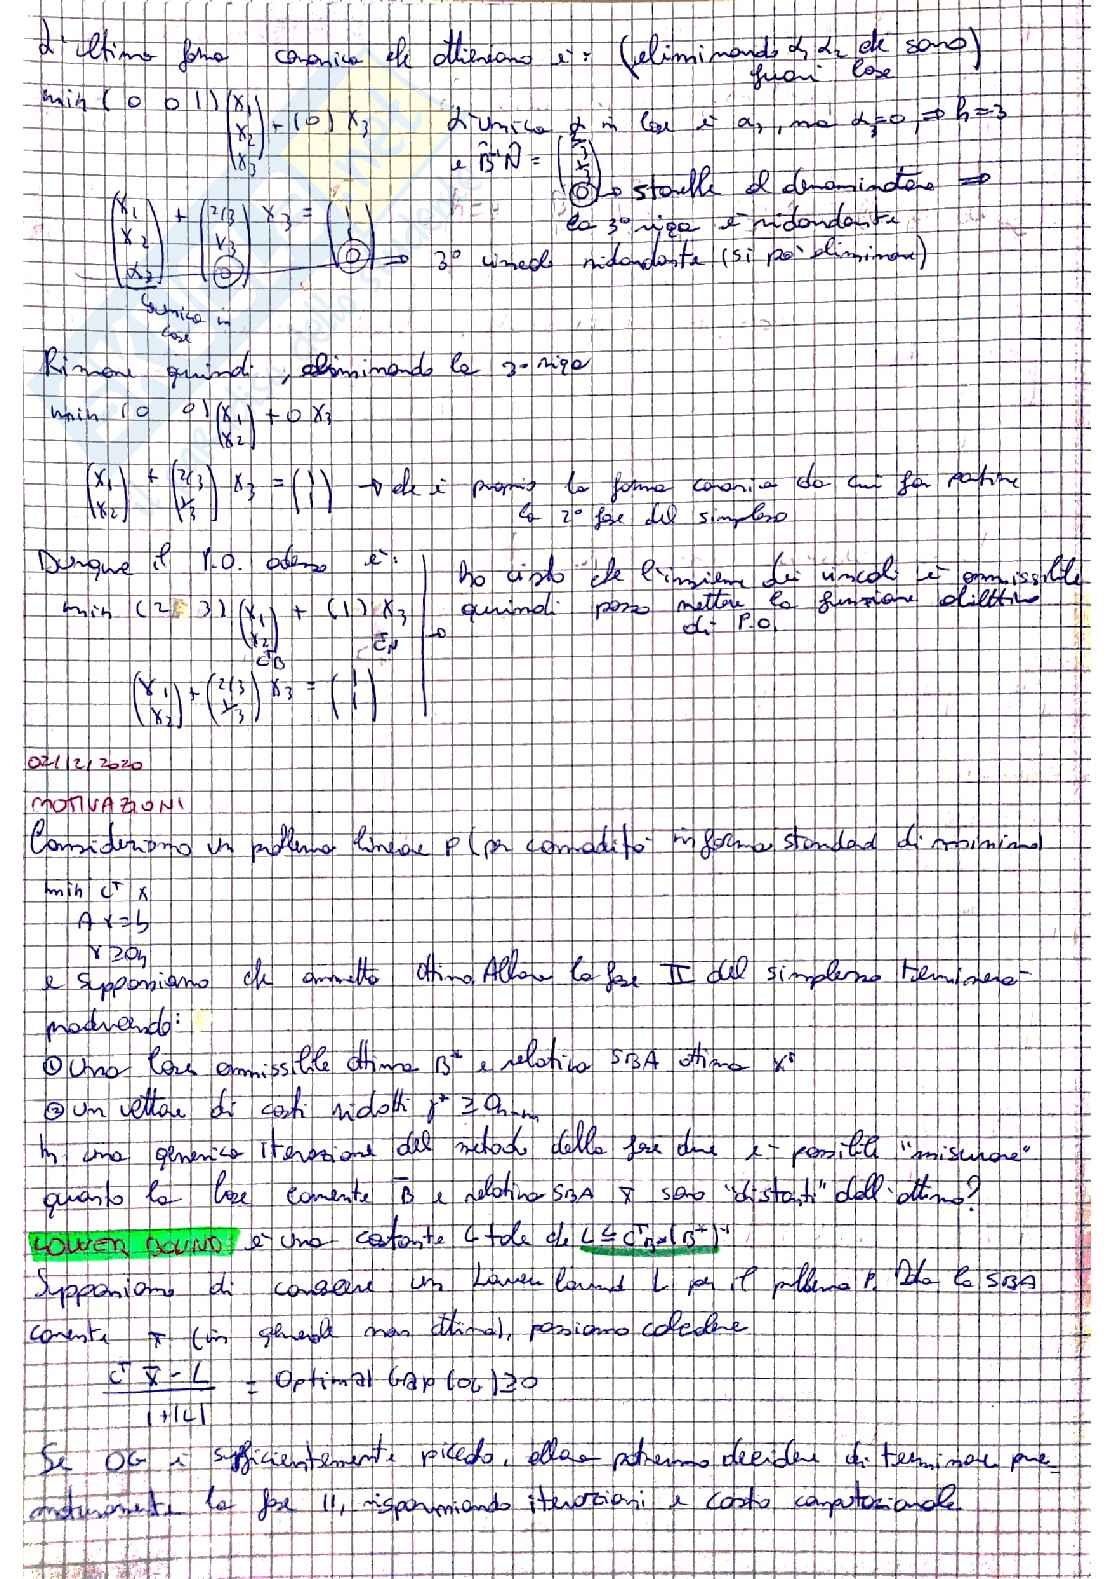 L'ultima forma canonica che otteniamo è: (eliminando α1 α2 che sono
fuori base
min (0 0 1) (x1 x2 x3) + (0) x3
L'unica α in base è α3, ma α3=0, ⇒ h=3
e B̂⁻¹N̂ = (2/3 1/3 0) → starebbe al denominatore ⇒
la 3° riga è ridondante
(x1 x2 α3) + (2/3 1/3 0) x3 = (1 1 0) ⇒ 3° vincolo ridondante (si può eliminare)
↳ unica in
base
Rimane quindi, eliminando la 3° riga
min (0 0) (x1 x2) + 0 x3
(x1 x2) + (2/3 1/3) x3 = (1 1) → che è proprio la forma canonica da cui far partire
la 2° fase del simplesso
Dunque il P.O. adesso è:
min (2 3) (x1 x2) + (1) x3
C^T_B C_N
(x1 x2) + (2/3 1/3) x3 = (1 1)
ho visto che l'insieme dei vincoli è ammissibile
quindi posso mettere la funzione obiettivo
di P.O.
02/12/2020
MOTIVAZIONI
Consideriamo un problema lineare P (per comodità in forma standard di minimo)
min c^T x
Ax=b
x≥0n
e supponiamo che ammetta ottimo. Allora la fase II del simplesso terminerà
producendo:
① Una base ammissibile ottima B* e relativa SBA ottima x*
② Un vettore di costi ridotti γ* ≥ 0n-m
In una generica iterazione del metodo della fase due è possibile "misurare"
quanto la base corrente B̄ e relativa SBA x̄ sono "distanti" dall'ottimo?
LOWER BOUND è una costante L tale che L ≤ C^T_B* (B*)⁻¹
Supponiamo di conoscere un Lower bound L per il problema P. Data la SBA
corrente x̄ (in generale non ottima), possiamo calcolare
(c^T x̄ - L) / (1+|L|) = Optimal Gap (OG) ≥0
Se OG è sufficientemente piccolo, allora potremmo decidere di terminare pre-
maturamente la fase II, risparmiando iterazioni e costo computazionale